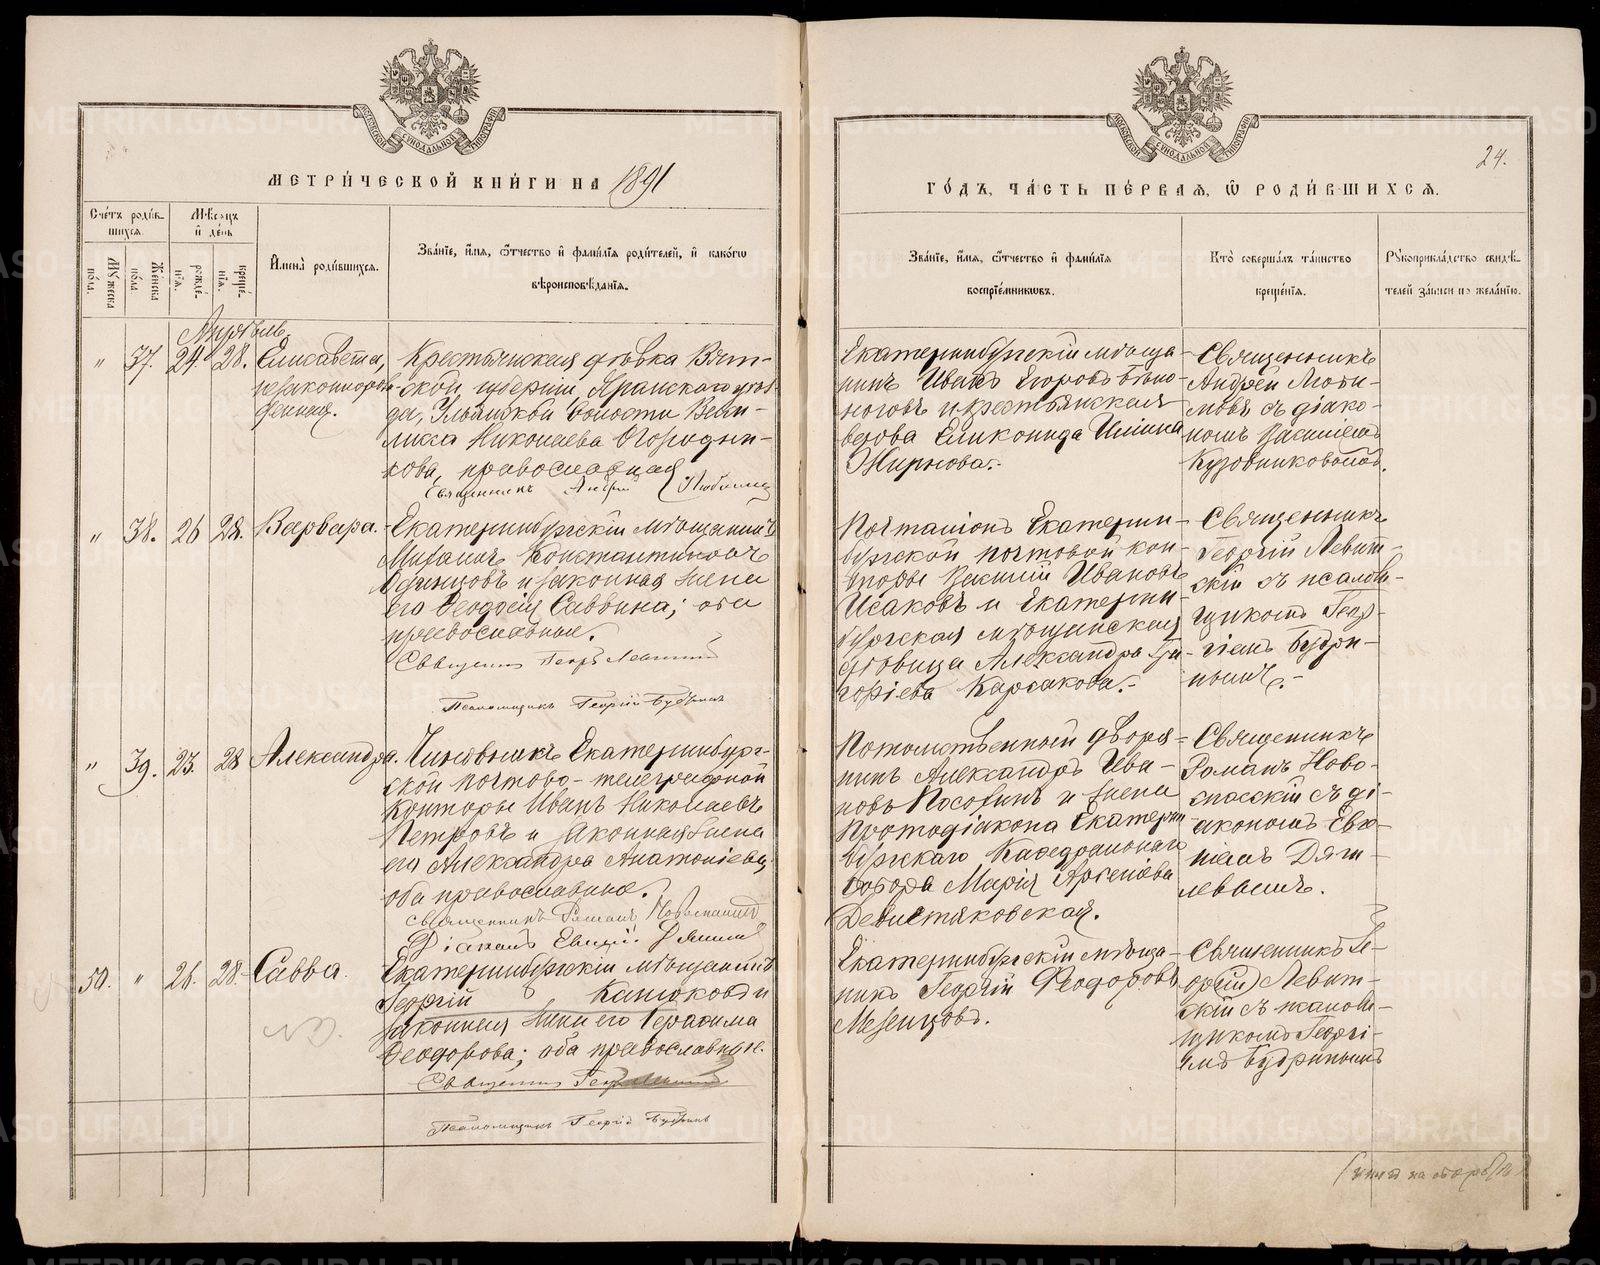 МЕТРИ́ЧЕСКОЙ КНИ́ГИ НА 1891
ГО́ДЪ, ЧА́СТЬ ПЕ́РВАЯ, Ѿ РОДИ́ВШИХСЯ.
24.
Сче́тъ роди́в-
шихся.
Мѣ́сяцъ
и҆ де́нь
Му́жеска
по́ла.
Же́нска
по́ла.
рожде́-
нїѧ.
креще́-
нїѧ.
И҆мена̀ роди́вшихся.
Зва́нїе, и҆́мя, ѻ҆́тчество и҆ фами́лїя роди́телей, и҆ како́гѡ
вѣроисповѣ́данїя.
Зва́нїе, и҆́мя, ѻ҆́тчество и҆ фами́лїя
воспрїе́мникѡвъ.
Кто̀ соверша́лъ та́инство
креще́нїя.
Рꙋкоприкла́дство свидѣ́-
телей за́писи по жела́нїю.
Апрѣль.
" 37. 24 28. Елисавета,
незаконнорож-
денная.
Крестьянская дѣвка Вят-
ской губерніи Яранскаго уѣз-
да, волости
Николаева Огородни-
кова, православная
Священникъ Андрей
Екатеринбургскій мѣща-
нинъ Иванъ Егоровъ Бѣло-
ноговъ и крестьянская
Еликонида
Жирнова.-
Священникъ
Андрей
съ діако-
номъ Василіемъ
Кузовниковымъ.
" 38. 26 28. Варвара.
Екатеринбургскій мѣщанинъ
Михаилъ Константиновъ
Одинцовъ и законная жена
его Феодосія Саввина; оба
православные.
Священникъ Георгій Левитскій
Псаломщикъ Георгій Будринъ
Почталіонъ Екатерин-
бургской почтовой кон-
торы Василій Ивановъ
Исаковъ и Екатерин-
бургская мѣщанская
дѣвица Александра Гри-
горіева Карсакова.-
Священникъ
Георгій Левит-
скій съ псалом-
щикомъ Геор-
гіемъ Будри-
нымъ.-
" 39. 23. 28 Александра.
Чиновникъ Екатеринбург-
ской почтово-телеграфной
конторы Иванъ Николаевъ
Петровъ и законная жена
его Александра Анатоліева,
оба православные.
Священникъ Романъ Новоспасскій
Діаконъ Евгеній
Потомственный дворя-
нинъ Александръ Ива-
новъ и жена
Протодіакона Екатерин-
бургскаго Каѳедральнаго
собора Марія Арсеніева
Священникъ
Романъ Ново-
спасскій съ ді-
акономъ Евге-
ніемъ Дяги-
левымъ.
50. " 26. 28. Савва.
Екатеринбургскій мѣщанинъ
Георгій Канюковъ и
законная жена его Герасима
Феодорова; оба православные.
Священникъ Георгій
Псаломщикъ Георгій Будринъ
Екатеринбургскій мѣща-
нинъ Георгій Феодоровъ
Мезенцовъ.
Священникъ Ге-
оргій Левит-
скій съ псалом-
щикомъ Георгі-
емъ Будринымъ
METRIKI.GASO-URAL.RU